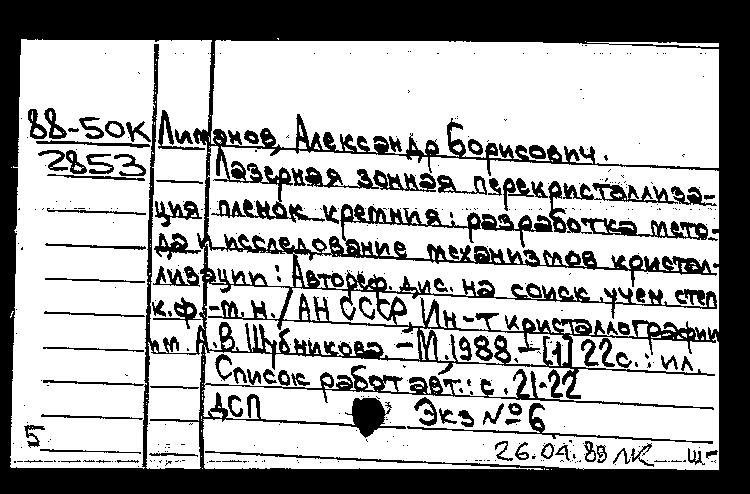 88-50К Лиманов, Александр Борисович.
2853 Лазерная зонная перекристаллиза-
ция пленок кремния: разработка мето-
да и исследование механизмов кристал-
лизации: Автореф. дис. на соиск. учен. степ
к.ф.-м.н./АН СССР, Ин-т кристаллографии
им. А.В. Шубникова. -М., 1988. -[1] 22с.: ил.
Список работ авт.: с. 21-22
ДСП Экз № 6
5
26.04.88 ЛК ш-